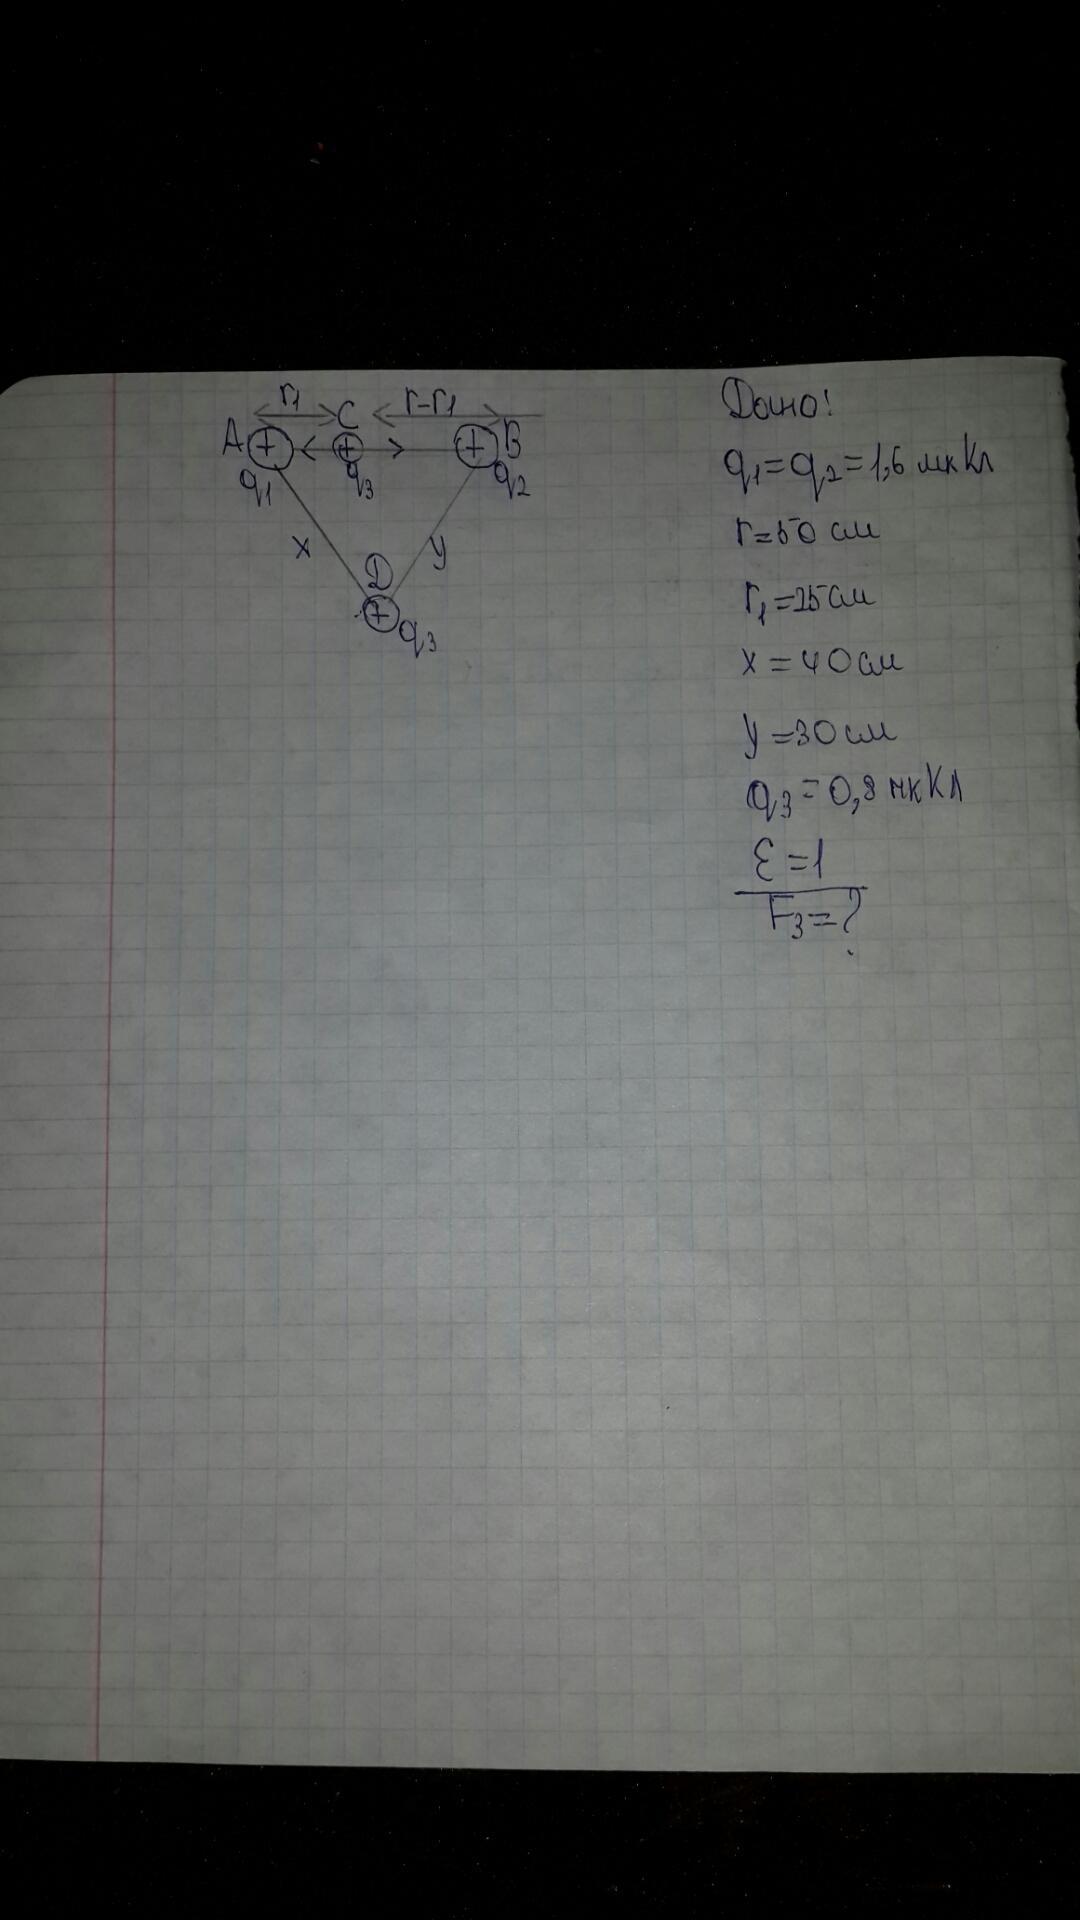 r₁ C r-r₁
A + + + B
q₁ q₃ q₂
x y
D
+ q₃
Дано:
q₁=q₂=1,6 мкКл
r=50 см
r₁=25см
x=40см
y=30см
q₃=0,8 мкКл
ε=1
F₃=?